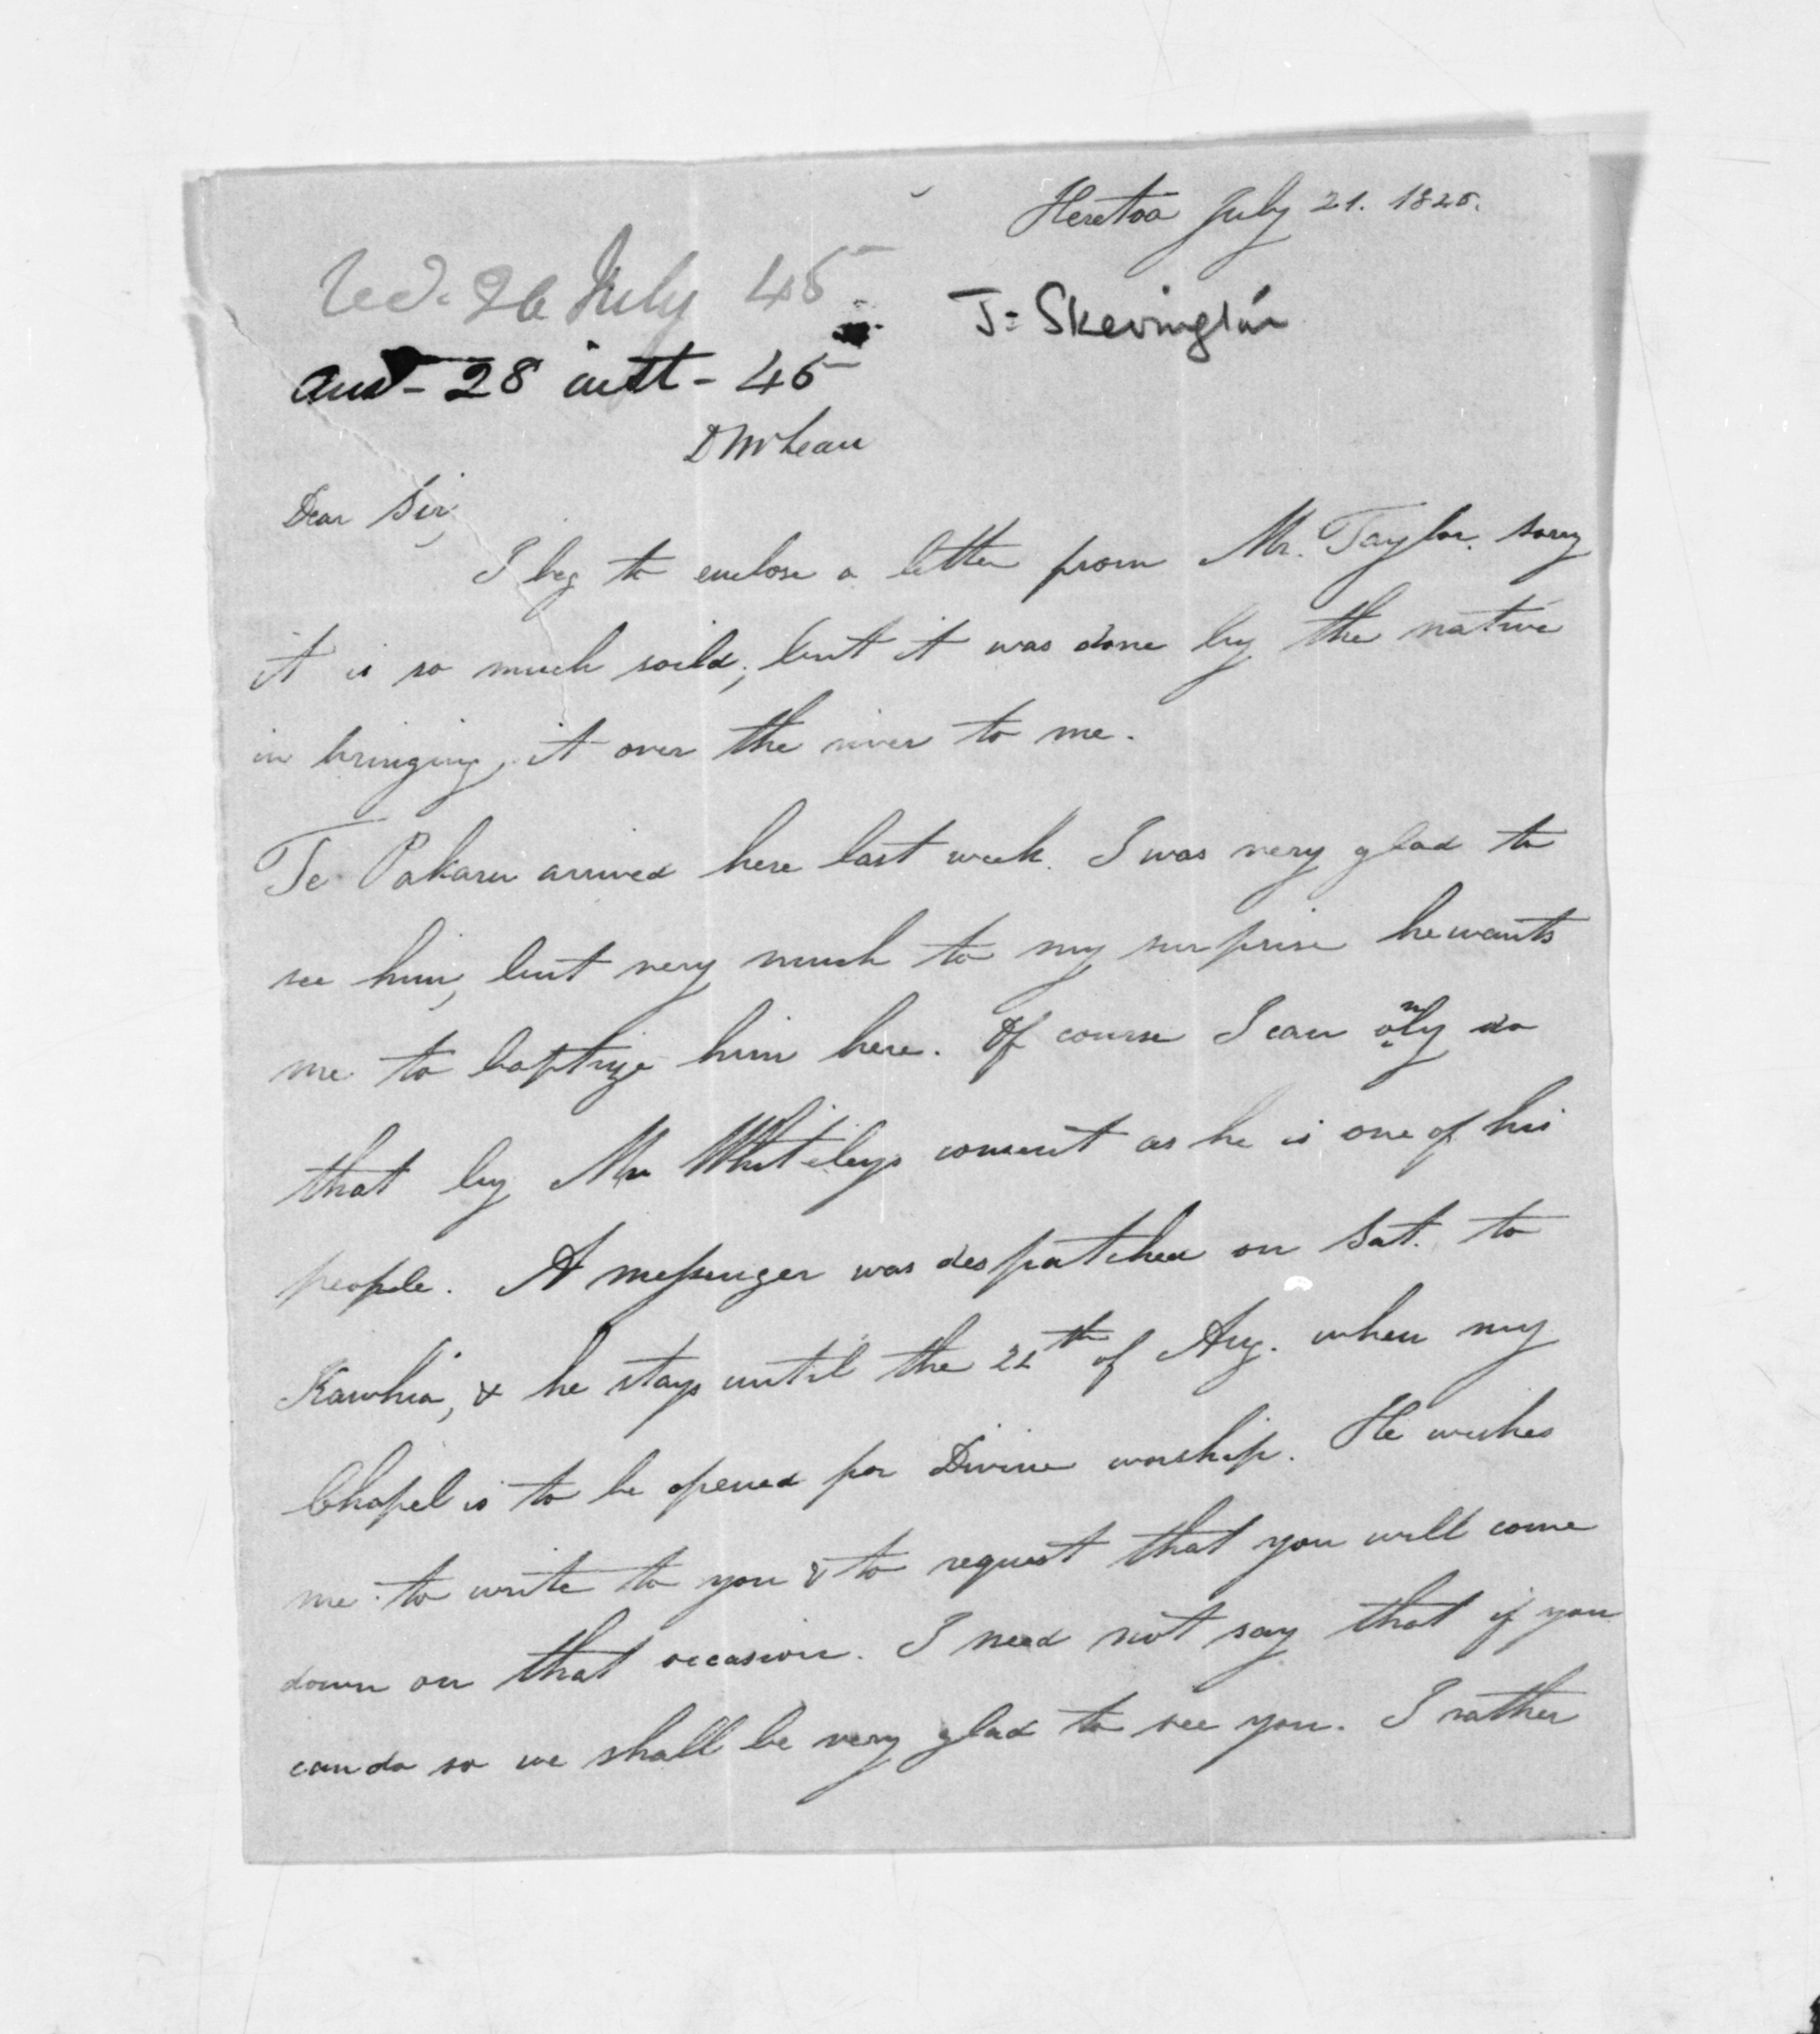 Heretoa July 21. 1845.
Recd. 26 July 45
J= Skevington
ansd - 28 instt - 45
D McLean
Dear Sir,
I beg to enclose a letter from Mr. Taylor. sorry
it is so much soild; but it was done by the native
in bringing it over the river to me.
Te Pakaru arrived here last week. I was very glad to
see him, but very much to my surprise he wants
me to baptize him here. Of course I can only do
that by Mr Whiteleys consent as he is one of his
people. A messenger was despatched on Sat. to
Kawhia, & he stays until the 22th of Aug. when my
Chapel is to be opened for Divine worship. He wishes
me to write to you & to request that you will come
down on that occasion. I need not say that if you
can do so we shall be very glad to see you. I rather